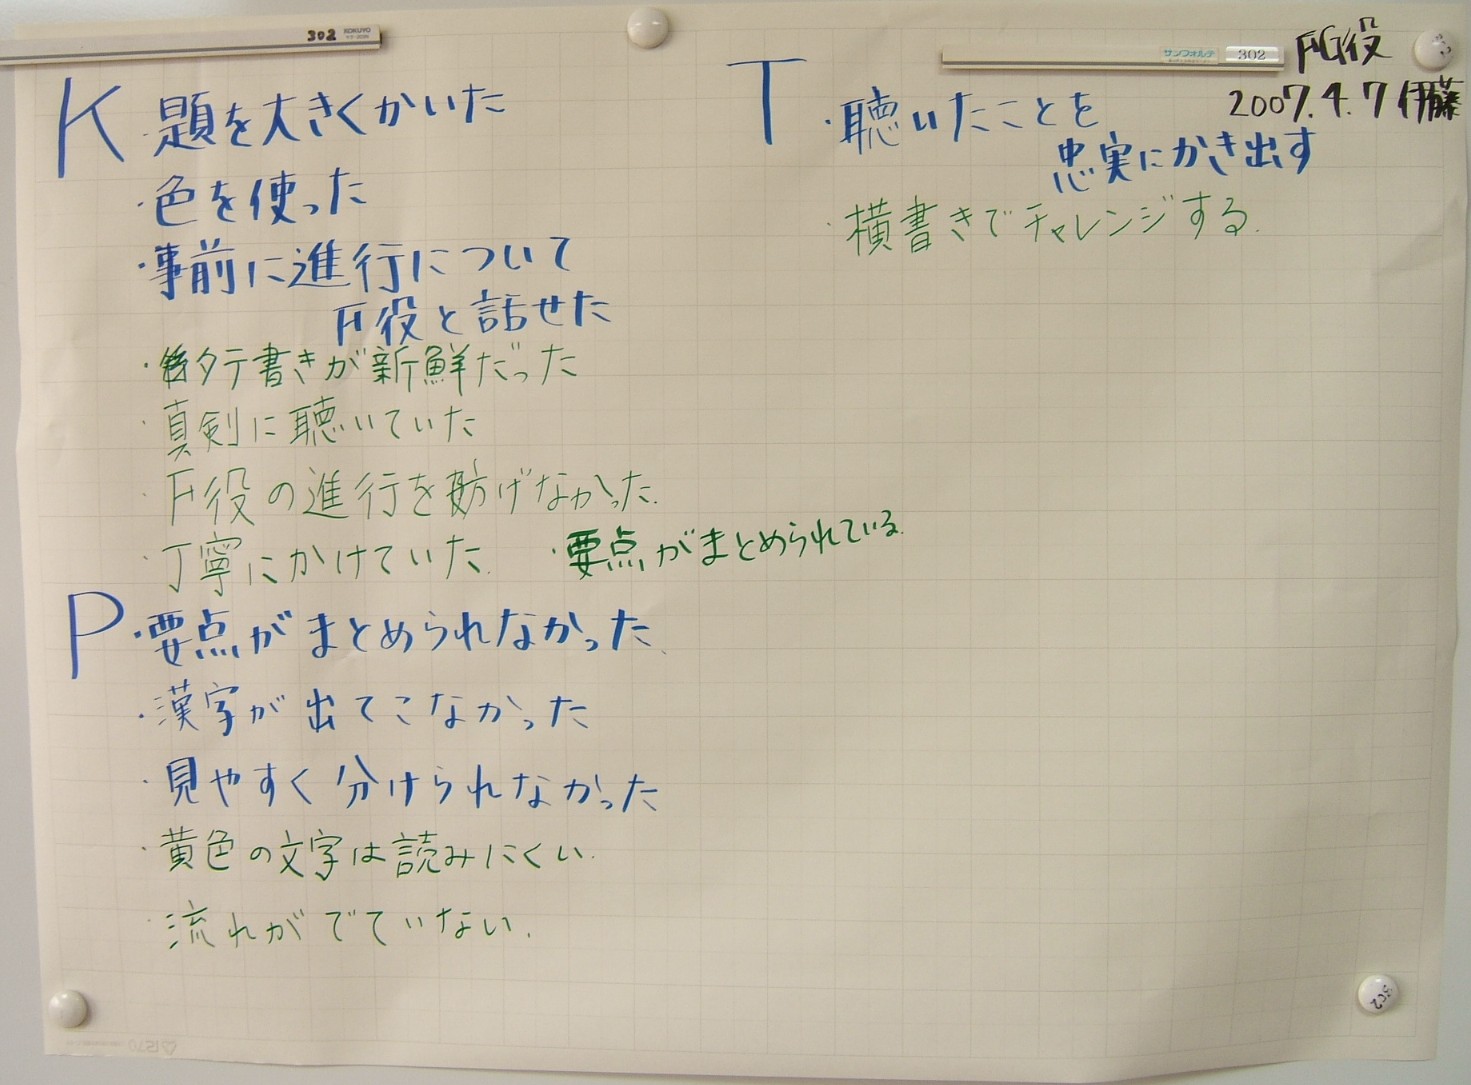 302 KOKUYO
サンフォルテ 302
FG役
2007.4.7 伊藤
K
・題を大きくかいた
・色を使った
・事前に進行について
F役と話せた
・タテ書きが新鮮だった
・真剣に聴いていた
・F役の進行を妨げなかった.
・丁寧にかけていた. ・要点がまとめられている.
P
・要点がまとめられなかった.
・漢字が出てこなかった
・見やすく分けられなかった
・黄色の文字は読みにくい.
・流れがでていない.
T
・聴いたことを
忠実にかき出す
・横書きでチャレンジする.
302